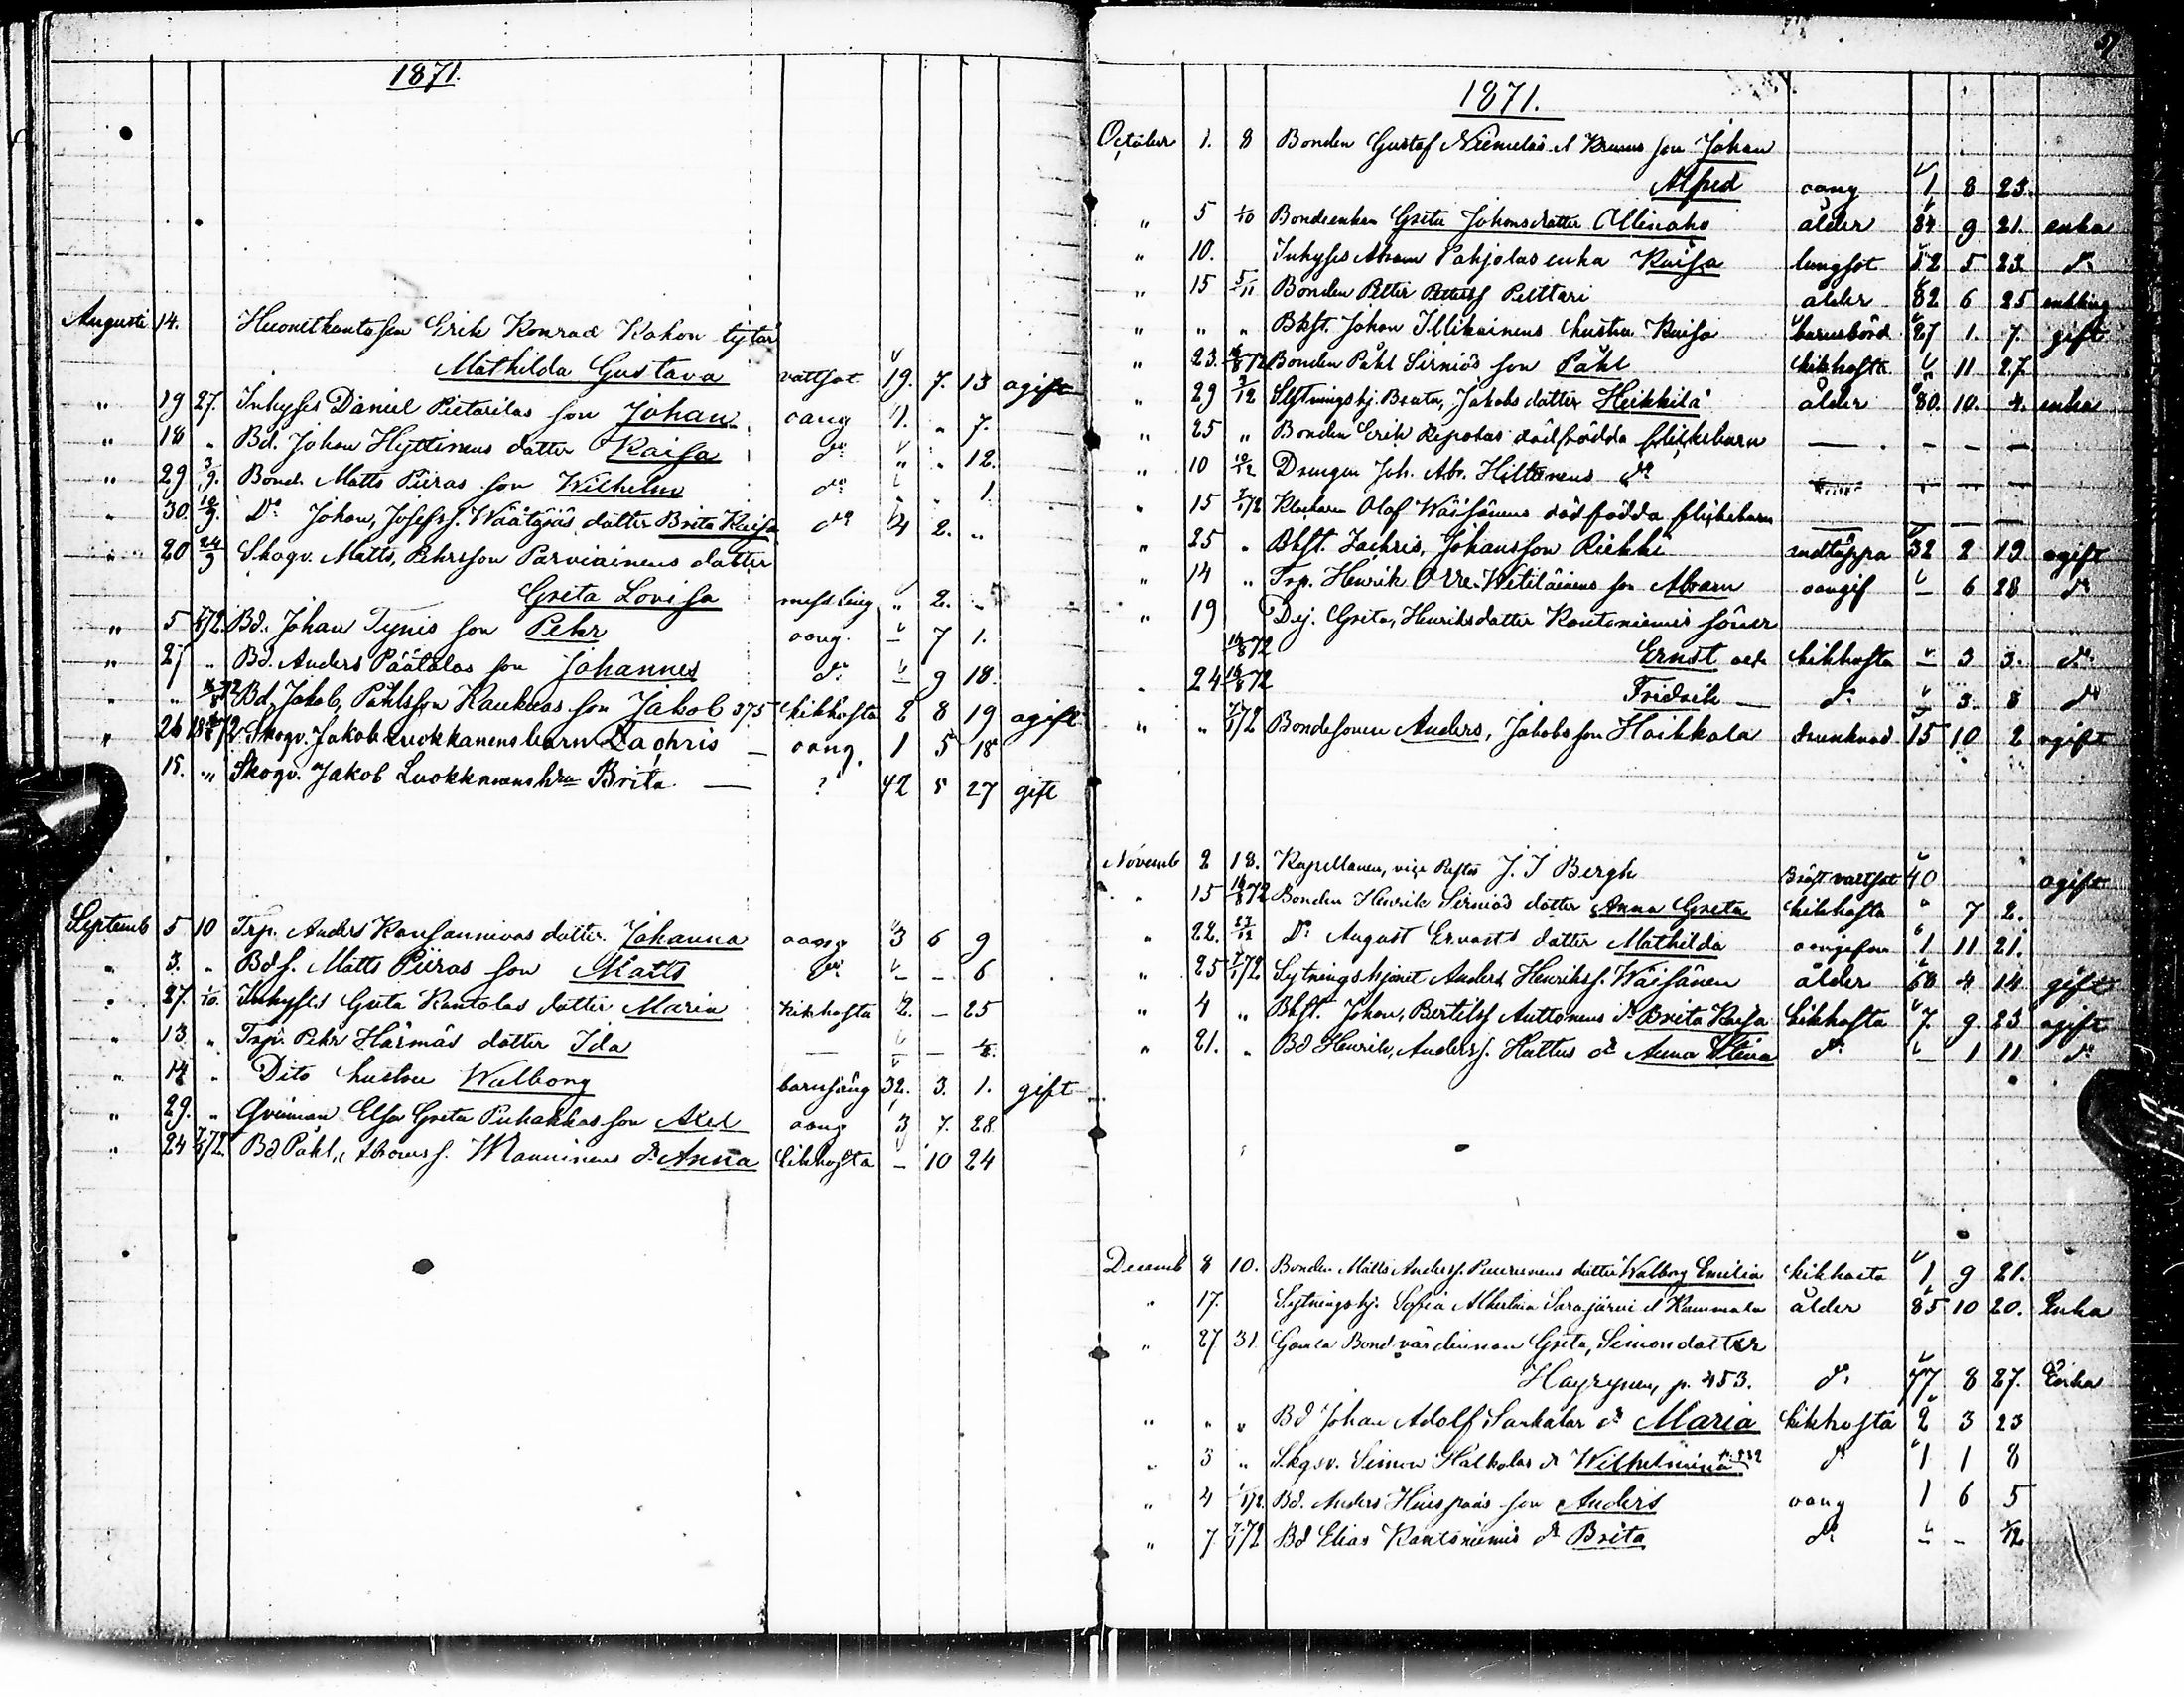 1871.
Augusti 14. Erik Konrad Kokon tytär
Mathilda Gustava vattsot 19. 7. 13 ogift
" 19 27. Inhyses Daniel Pietarilas son Johan oang 1. " 7.
" 18 " Bd. Johan Hyttinens dotter Kaisa do " " 12.
" 29 3/9. Bond. Matts Piiras son Wilhelm do " 1
" 30. 10/9. Do Johan, Josefss. Väätäjäs dotter Brita Kaisa do 4 2. "
" 20 24/9 Skogv. Matts, Pehrsson Parviainens dotter
Greta Lovisa messling " 2. "
" 5 Bd. Johan Tynis son Pehr oang. – 7 1.
" 27 " Bd. Anders Päätalos son Johannes do – 9 18.
" " Bd. Jakob, Påhlsson Haukkas son Jakob 375 kikhosta 2 8 19 ogift
" 26 Skogv. Jakob Luokkanens barn Zachris — oang. 1 5 18
15. " Skogv. Jakob Luokkanens hru Brita — ? 42 5 27 gift
Septemb 5 10 Trp. Anders Kansannivas dotter Johanna oang 3 6 9
" 3. " Bds. Matts Piiras son Matts do – – 6
" 27. 1/10. Inhyses Greta Kantolas dotter Maria kikhosta 2. – 25
" 13. " Trp. Pehr Härmäs dotter Ida — – –
" 14 " Dito hustru Walborg barnsäng 32. 3. 1. gift
" 29. " Qvinnan Elsa Greta Puhakkas son Axel oang 3 7. 28
" 24 7/1 72. Bd Påhl, Abramss. Manninens dr Anna kikhosta – 10 24
1871.
October 1. 8 Bonden Gustaf Niemeläs son Johan
Alfred oang 1 8 23.
" 5 1/10 Bondeenkan Greta Johansdotter Alinaho ålder 84 9 21. enka
" 10. Inhyses Abram Pohjolas enka Kaisa lungsot 52 5 23. do
" 15 5/11 Bonden Petter Petterss Pelttari ålder 82 6 25 enkling
" " " Bkft. Johan Illikainens hustru Kaisa barnsbörd 27 1. 7. gift
" 23. Bonden Påhl Sirniös son Påhl kikhosta " 11 27.
" 29 3/12 Sytningshj. Brita, Jakobsdotter Heikkilä ålder 80. 10. 4. enka
" 25 " Bonden Erik Repolas dödfödda flickebarn — – – –
" 10 10/12 Drengen Joh. Abr. Hiltunens do – – –
" 15 7/1 72 Klockaren Olof Wäisänens dödfödda flickebarn — – – –
" 25 " Bkft. Zachris, Johansson Riekki andtäppa 32 2 19 ogift
" 14 " Trp. Henrik Orre-Witiläinens son Abram oangif – 6 28 do
" 19 Pij. Greta, Henriksdotter Kantoniemis söner
16/8 72 Ernst och kikhosta – 3 3. do
" 24 16/8 72 Fridrik — do 3. 8 do
" " 7/1 72 Bondesonen Anders, Jakobsson Haikkola drunknad 15 10 2 ogift
Novemb 2 18. Kapellanen, vice Pastor J. I Bergh Bröst vattsot 40 ogift
" 15 16/8 72 Bonden Henrik Sirniös dotter Anna Greta kikhosta " 7 2.
" 22. 27/12 Do August Ervasts dotter Mathilda oangifven 1. 11 21.
" 25 7/1 72 Sytningshjonet Anders Henrikss. Wäisänen ålder 68 4 14 gift
" 4 " Bkft. Johan, Bertilss Anttonens dr Brita Kaisa kikhosta 7. 9. 23 ogift
" 21. " Bd Henrik, Anderss. Hattus dr Anna Stina do – 1 11 do
Decemb 8 10. Bonden Matts Anderss. Puurunens dotter Walborg Emilia kikhosta 1 9 21.
" 17. Sytningshj. Sofia Albertina Sarajärvi ålder 85 10 20. Enka
" 27 31 Gamla Bondvärdinnan Greta, Simonsdotter
Häyrynen, p. 453. do 77 8 27. Enka
" " " Bd Johan Adolf Sarkalas dr Maria kikhosta 2 3 23
" 3 " Skgsv. Simon Halkolas dr Wilhelmina do 1 1 8
" 4 Bd. Anders son Anders oang 1 6 5
" 7 7/1 72 Bd Elias Kantoniemis dr Brita do – – 1/2